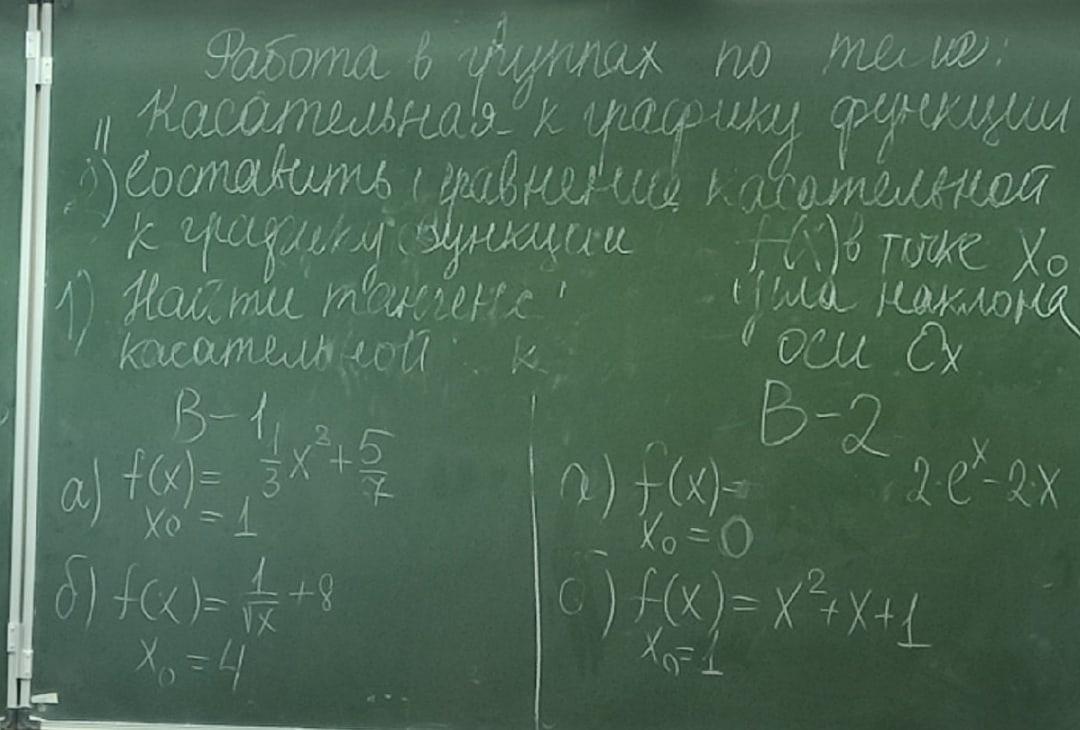 Работа в группах по теме:
Касательная к графику функции
2) Составить уравнение касательной
к графику функции f(x) в точке x₀
1) Найти тангенс угла наклона
касательной к оси Ox
В-1
а) f(x) = 1/3 x³ + 5/7
x₀ = 1
б) f(x) = 1/√x + 8
x₀ = 4
В-2
а) f(x) = 2·e^x - 2·x
x₀ = 0
б) f(x) = x² + x + 1
x₀ = 1